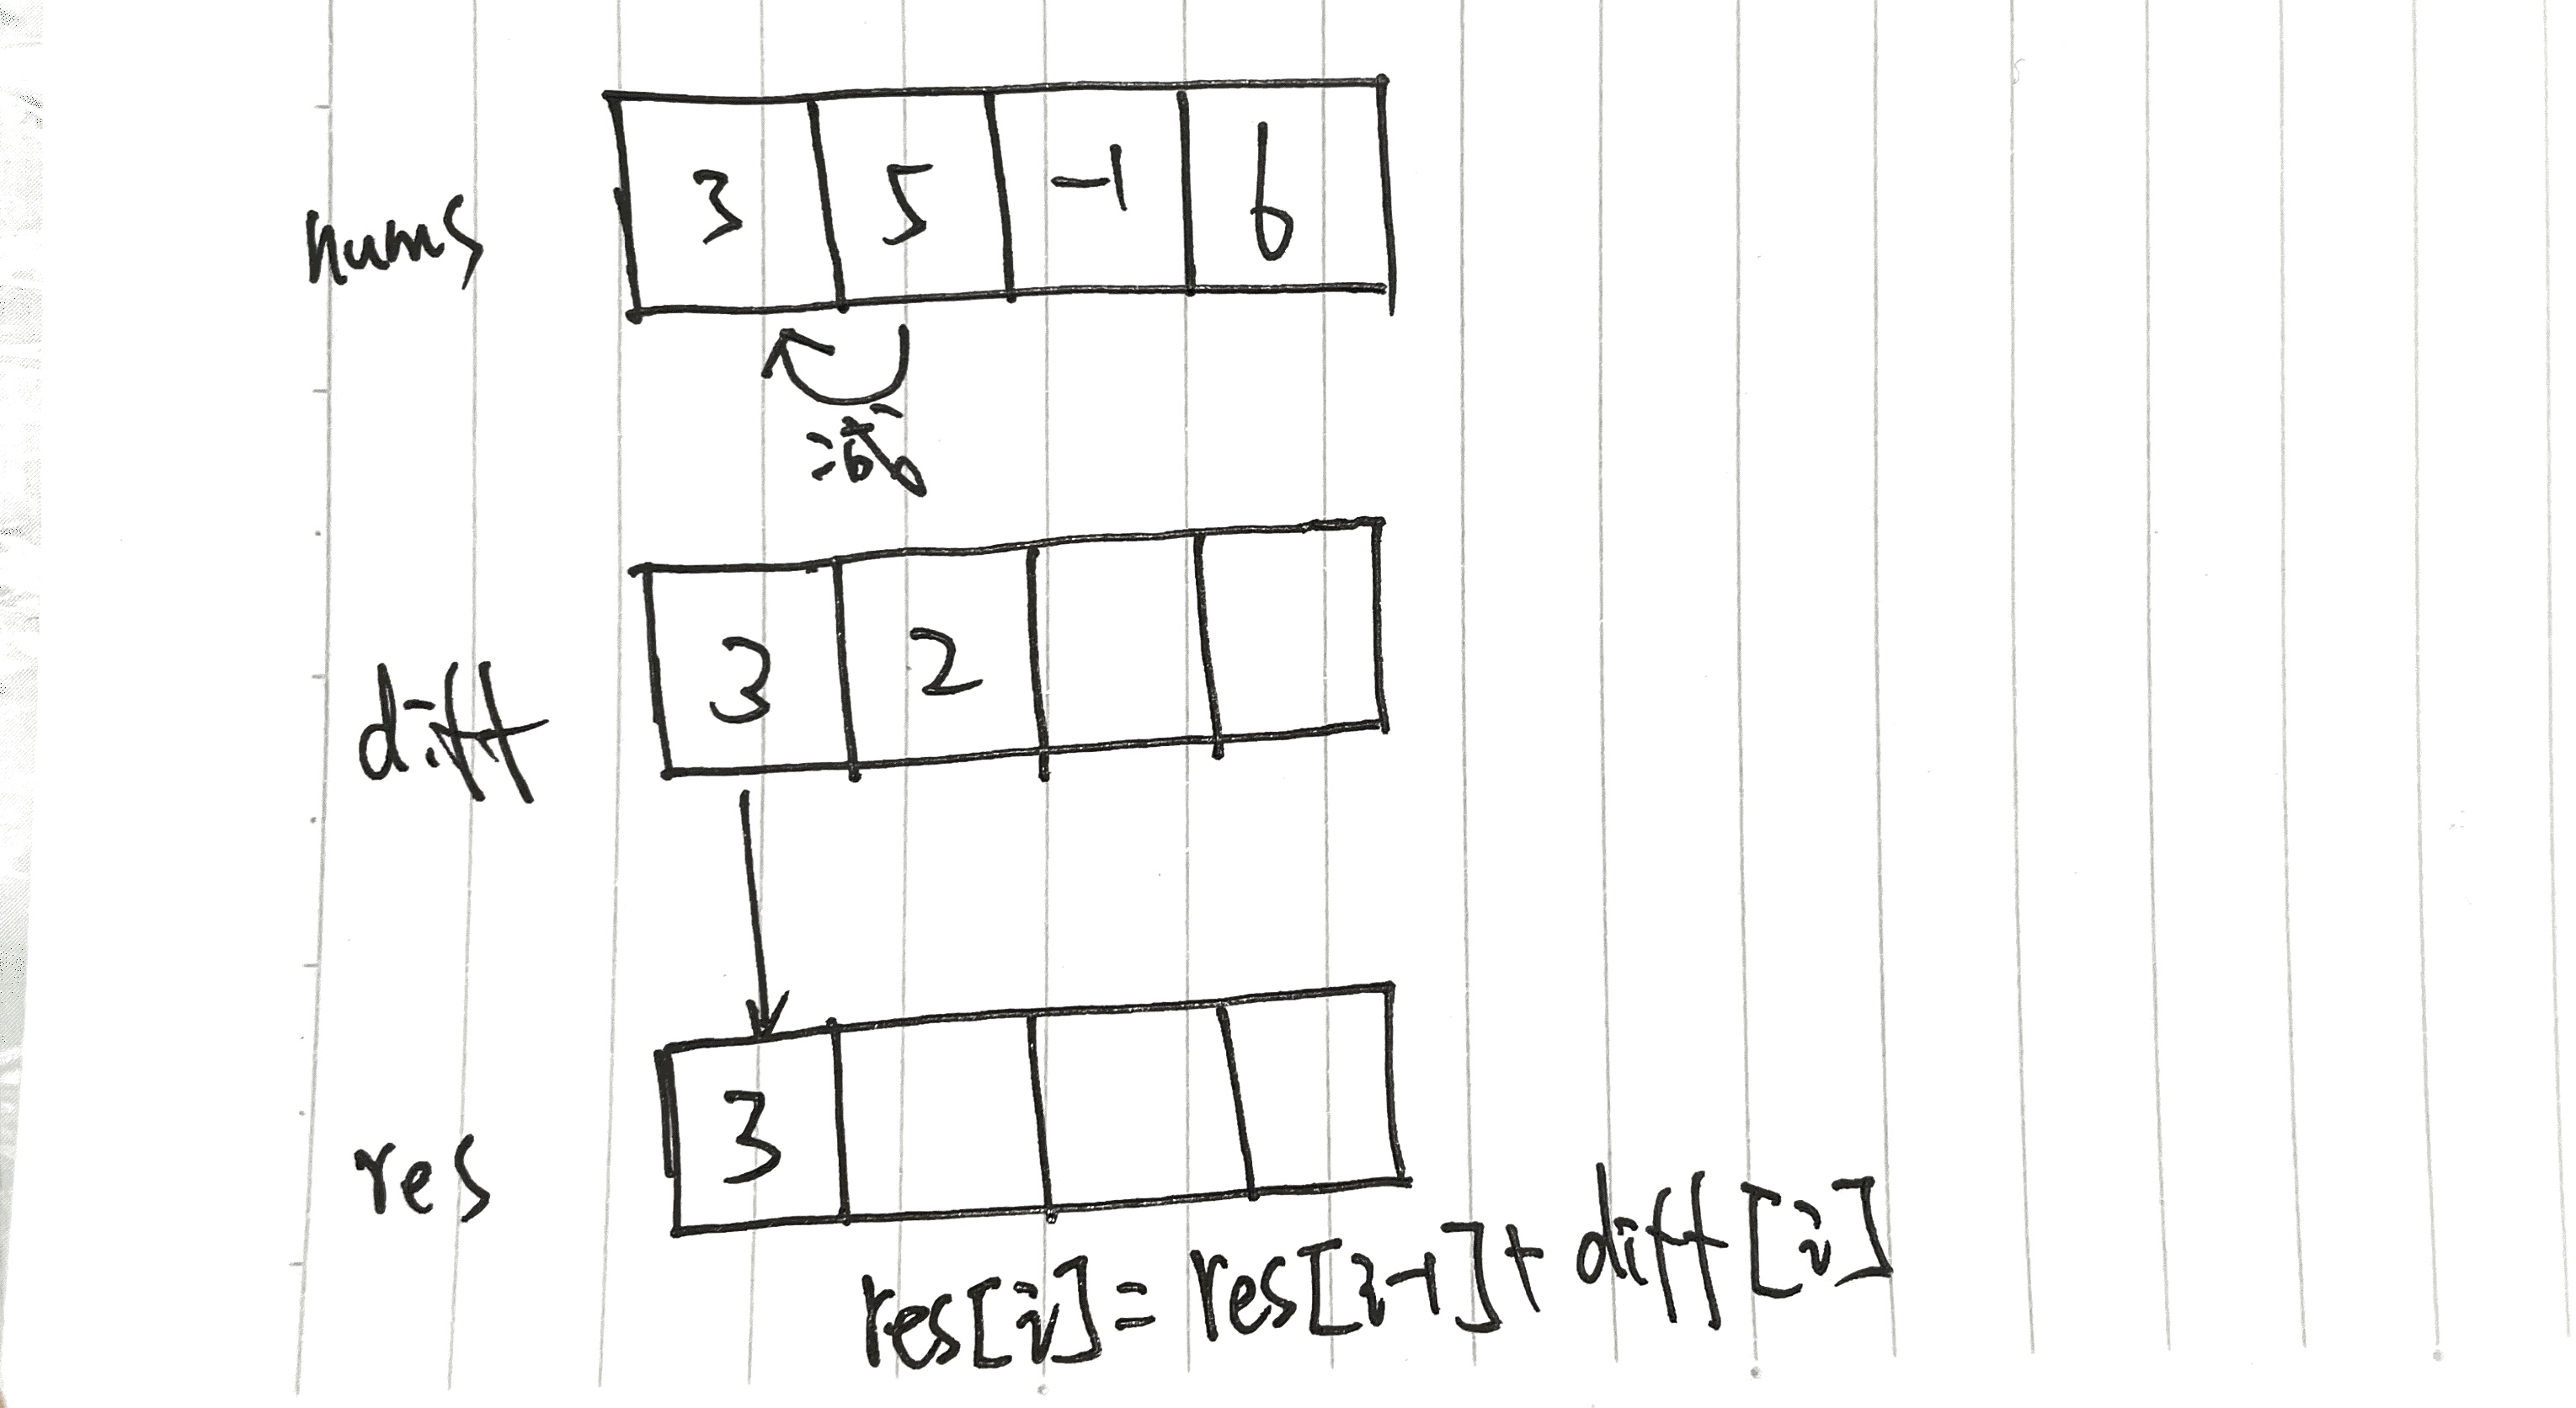 nums 3 5 -1 6
减
diff 3 2
res 3
res[i]=res[i-1]+diff[i]